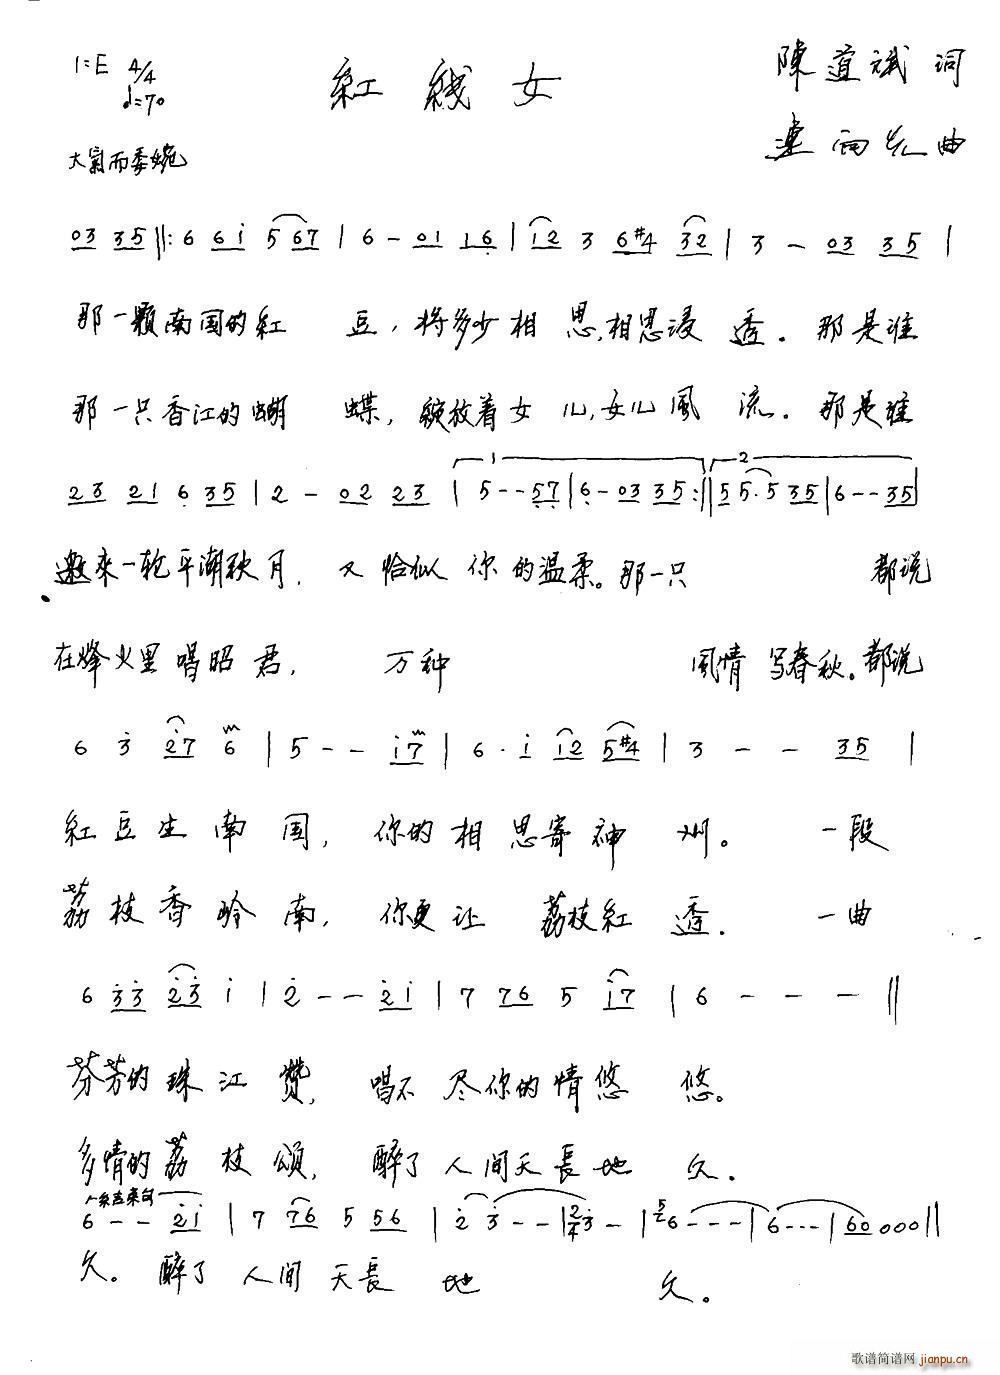 1=E 4/4
♩=70
紅 綫 女
陳道斌 詞
連雨 曲
大氣而委婉
03 35 ‖: 6 6i 5 67 | 6 - 01 16 | i2 3 6#4 32 | 3 - 03 35 |
那一顆南国的紅 豆,将多少相 思,相思浸 透。那是谁
那一只香江的蝴 蝶,綻放着女 儿,女儿風 流。那是谁
23 21 6 35 | 2 - 02 23 | 1 5 - - 57 | 6 - 03 35 :‖ 2 55·5 35 | 6 - - 35 |
邀來一轮平潮秋月,又恰似 你的温柔。那一只 都说
在烽火里唱昭君,万种 風情 写春秋。都说
6 3 27 6 | 5 - - i7 | 6 · i i2 5#4 | 3 - - 35 |
紅豆生南国,你的相思寄神 州。一段
荔枝香岭南,你更让 荔枝紅 透.一曲
6 33 23 i | 2 - - 2i | 7 76 5 i7 | 6 - - - ‖
芬芳的珠江赞,唱不尽你的情悠 悠。
多情的荔枝頌,醉了人间天長地 久.
6 - - 2i | 7 76 5 56 | 2 3 - - | 2/4 3 - | 6 - - - | 6 - - - | 60 000 ‖
久。醉了人间天長 地 久。
歌谱简谱网
jianpu.cn